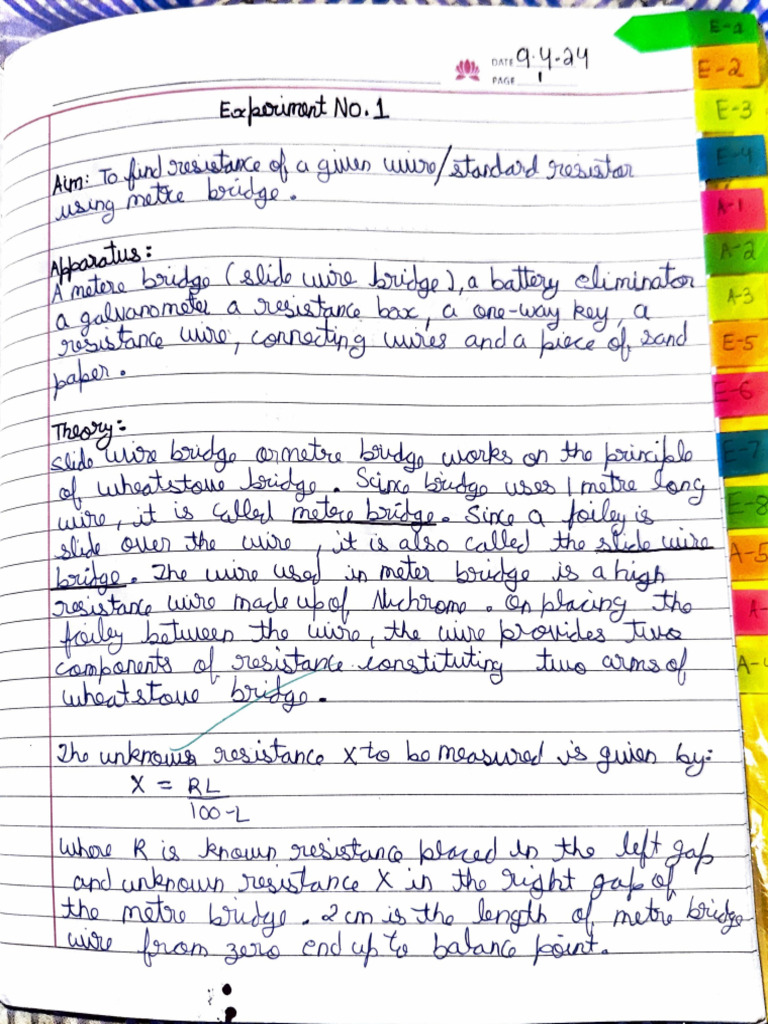 E-a
DATE 9.4.24
E-2
PAGE 1
Experiment No.1
E-3
E-4
Aim: To find resistance of a given wire/standard resistor
using metre bridge.
A-1
A-2
Apparatus:
A metere bridge (slide wire bridge), a battery eliminator
A-3
a galvanometer a resistance box, a one-way key, a
resistance wire, connecting wires and a piece of sand
E-5
paper.
E-6
Theory:
slide wire bridge or metre bridge works on the principle
E-7
of wheatstone bridge. Scince bridge uses 1 metre long
wire, it is called metere bridge. Since a foiley is
E-8
slide over the wire, it is also called the slide wire
A-5
bridge. The wire used in meter bridge is a high
resistance wire made up of Nichrome. On placing the
A-
foiley between the wire, the wire provides two
components of resistance constituting two arms of
A-
wheatstone bridge.
The unknown resistance X to be measured is given by:
X = RL
100-L
where R is known resistance placed in the left gap
and unknown resistance X in the right gap of
the metre bridge. 2 cm is the length of metre bridge
wire from zero end up to balance point.